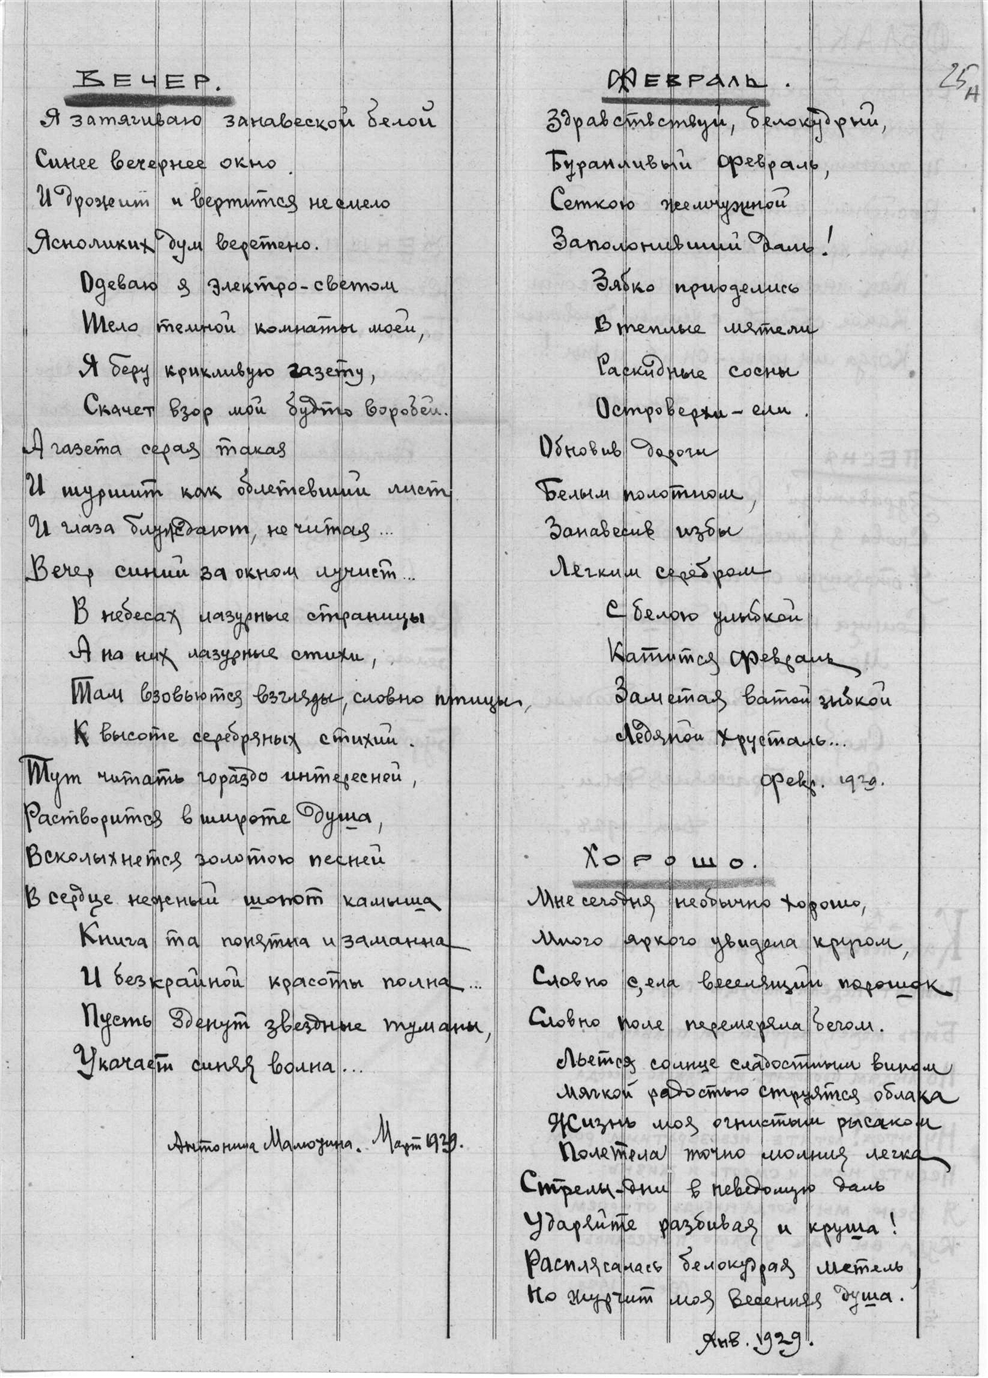 25н
ВЕЧЕР.
Я затягиваю занавеской белой
Синее вечернее окно.
И дрожит и вертится несмело
Ясноликих дум веретено.
Одеваю я электро-светом
Тело темной комнаты моей,
Я беру крикливую газету,
Скачет взор мой будто воробей.
А газета серая такая
И шуршит как облетевший лист
И глаза блуждают, не читая...
Вечер синий за окном лучист...
В небесах лазурные страницы
А на них лазурные стихи,
Там взовьются взгляды, словно птицы,
К высоте серебряных стихий.
Тут читать гораздо интересней,
Растворится в широте душа,
Всколыхнется золотою песней
В сердце нежный шопот камыша
Книга та понятна и заманна
И безкрайной красоты полна...
Пусть оденут звездные туманы,
Укачает синяя волна...
Антонина Малюзина. Март 1929.
ФЕВРАЛЬ.
Здравствствуй, белокудрый,
Буранливый февраль,
Сеткою жемчужной
Заполонивший даль!
Зябко приоделись
В теплые мятели
Раскидные сосны
Островерхи-ели.
Обновив дороги
Белым полотном,
Занавесив избы
Легким серебром
С белою улыбкой
Катится февраль
Заметая ватой зыбкой
Ледяной хрусталь...
Февр. 1929.
ХОРОШО.
Мне сегодня необычно хорошо,
Много яркого увидела кругом,
Словно с,ела веселящий порошок
Словно поле перемеряла бегом.
Льется солнце сладостным вином
Мягкой радостью струятся облака
Жизнь моя огнистым рысаком
Полетела точно молния легка
Стрелы-дни в неведомую даль
Ударяйте разбивая и круша!
Расплясалась белокудрая метель
Но журчит моя весенняя душа.
Янв. 1929.